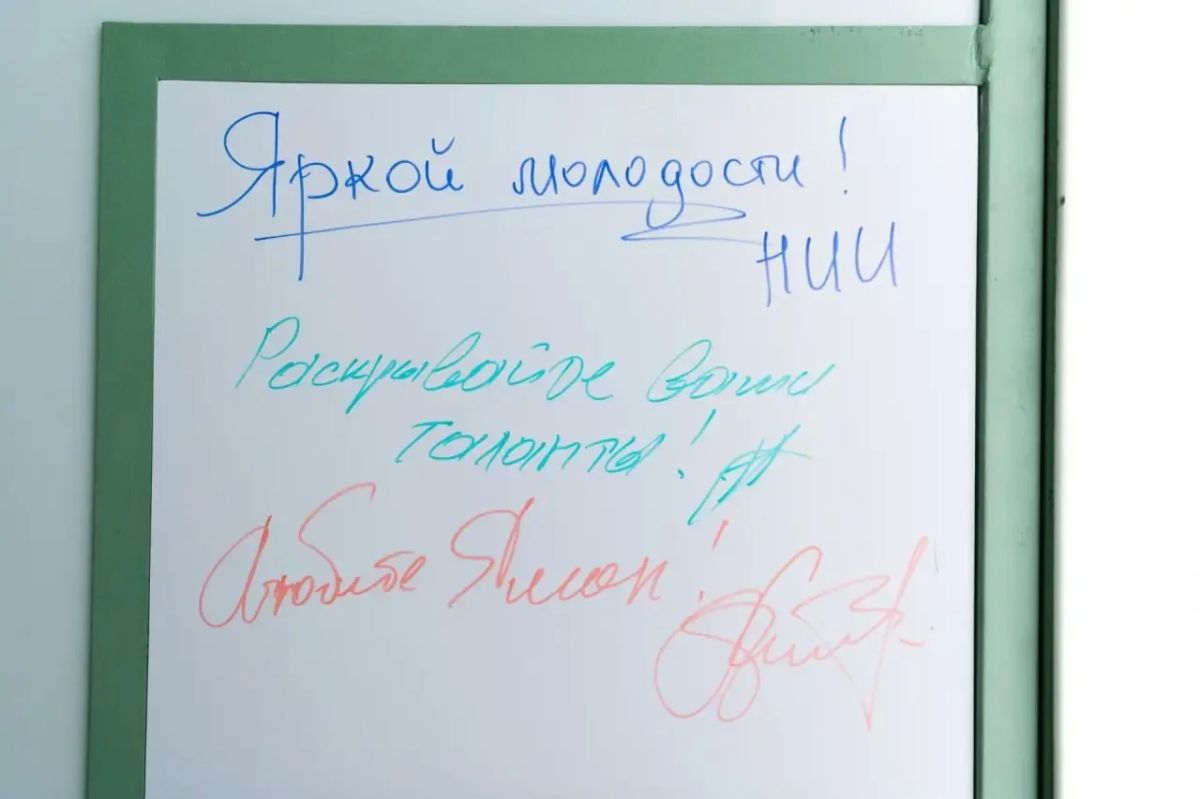 Яркой молодости!
НИИ
Раскрывайте ваши
таланты!
Любите Ямал!